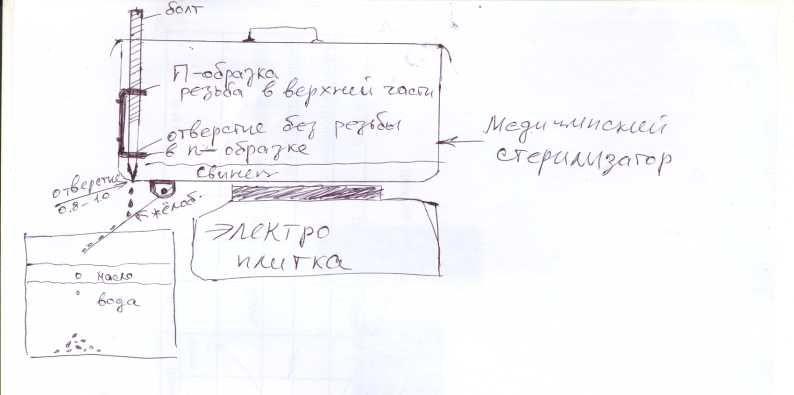 болт
П-образка
резьба в верхней части
отверстие без резьбы
в п-образке
свинец
Медицинский
стерилизатор
отверстие
0.8-1.0
жёлоб.
электро
плитка
масло
вода